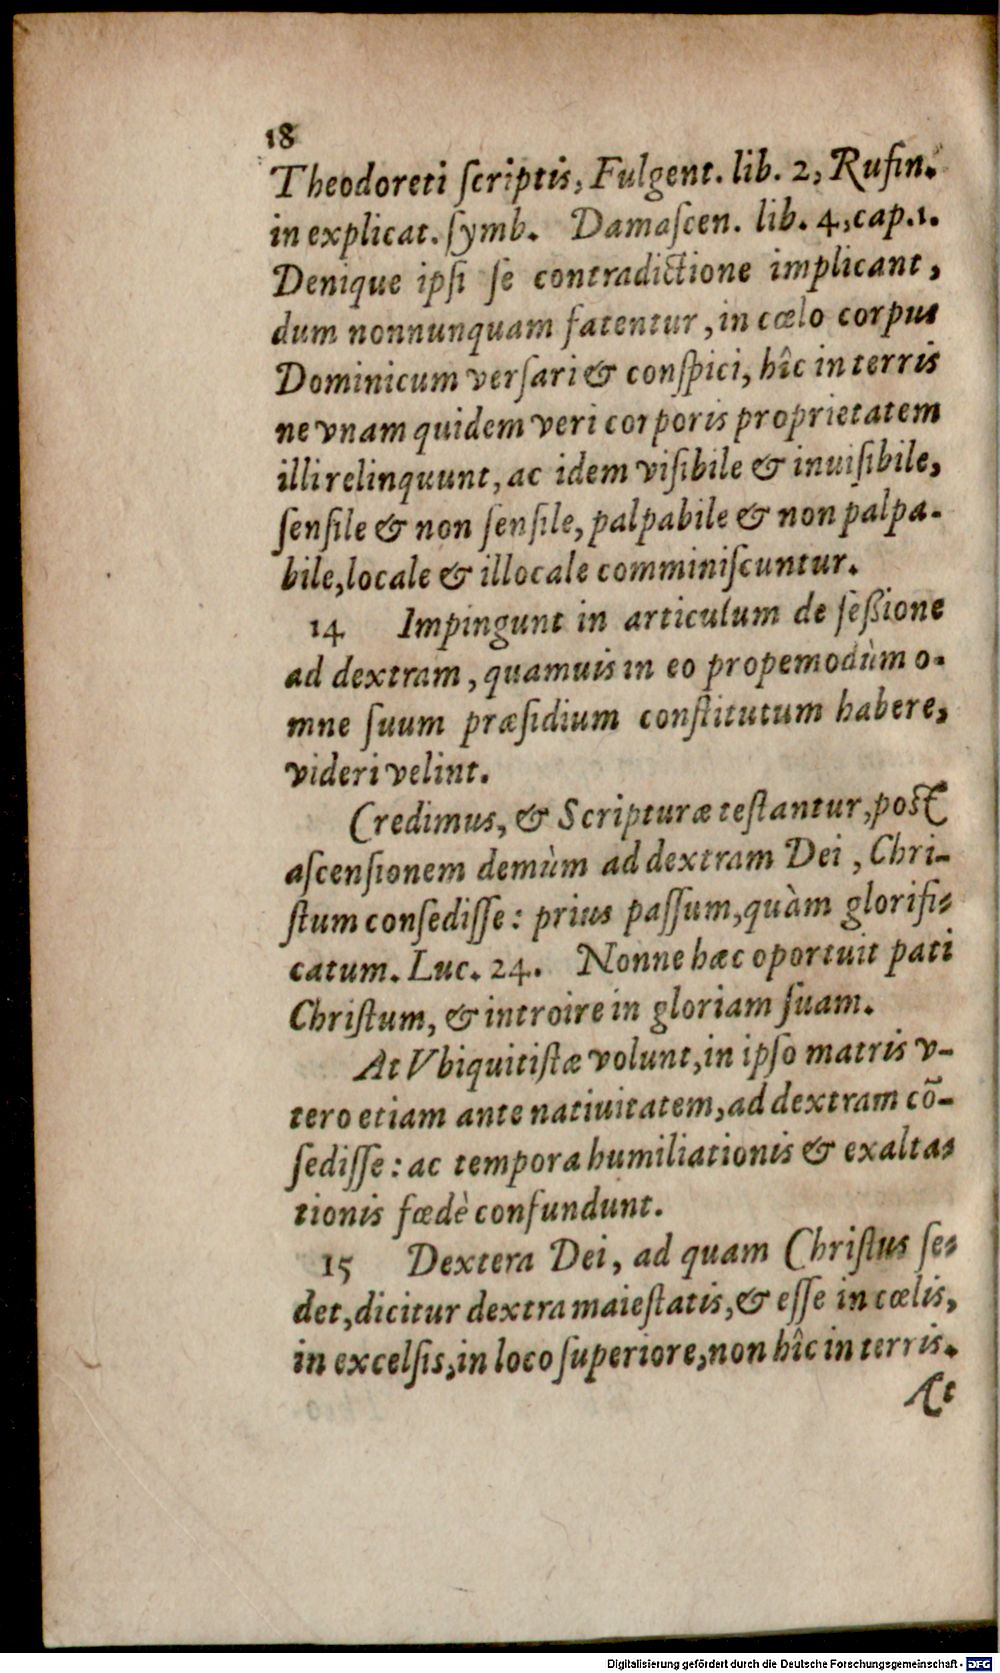 18
Theodoreti ſcriptis, Fulgent. lib. 2, Rufin.
in explicat. ſymb. Damaſcen. lib. 4, cap. 1.
Denique ipſi ſe contradictione implicant,
dum nonnunquam fatentur, in cœlo corpus
Dominicum verſari & conſpici, hîc in terris
ne vnam quidem veri corporis proprietatem
illi relinquunt, ac idem viſibile & inuiſibile,
ſenſile & non ſenſile, palpabile & non palpa-
bile, locale & illocale comminiſcuntur.
14 Impingunt in articulum de ſeßione
ad dextram, quamuis in eo propemodùm o-
mne ſuum præſidium conſtitutum habere,
videri velint.
Credimus, & Scripturæ teſtantur, post
aſcenſionem demùm ad dextram Dei, Chri-
ſtum conſediſſe: prius paſſum, quàm glorifi-
catum. Luc. 24. Nonne hæc oportuit pati
Chriſtum, & introire in gloriam ſuam.
At Vbiquitiſtæ volunt, in ipſo matris v-
tero etiam ante natiuitatem, ad dextram cõ-
ſediſſe: ac tempora humiliationis & exalta-
tionis fœdè confundunt.
15 Dextera Dei, ad quam Chriſtus ſe-
det, dicitur dextra maieſtatis, & eſſe in cœlis,
in excelſis, in loco ſuperiore, non hîc in terris.
At
Digitalisierung gefördert durch die Deutsche Forschungsgemeinschaft - DFG